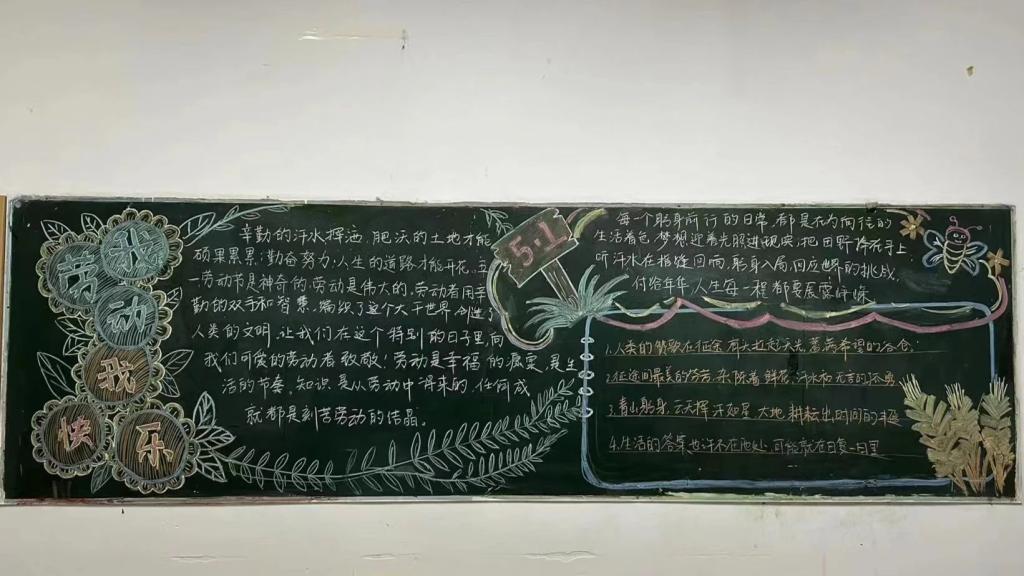 我劳动我快乐
辛勤的汗水挥洒,肥沃的土地才能
硕果累累;勤奋努力,人生的道路才能开花。五
一劳动节是神奇的,劳动是伟大的,劳动者用辛
勤的双手和智慧,编织了这个大千世界,创造了
人类的文明。让我们在这个特别的日子里向
我们可爱的劳动者致敬!劳动是幸福的源泉,是生
活的节奏。知识是从劳动中得来的,任何成
就都是刻苦劳动的结晶。
5·1
每一个躬身前行的日常,都是在为向往的
生活着色,梦想迎着光照进现实,把田野
听汗水在指缝回响,躬身入局,回应世界的挑战,
付给年年,人生每一程都要展露峥嵘
1.人类的 在征途,有 希望的谷仓。
2.征途间最美的 鲜花,汗水和无言的
3.青山躬身,云天挥汗如星,大地耕耘出时间的
4.生活的答案也许不在他处,可能就在日复一日里